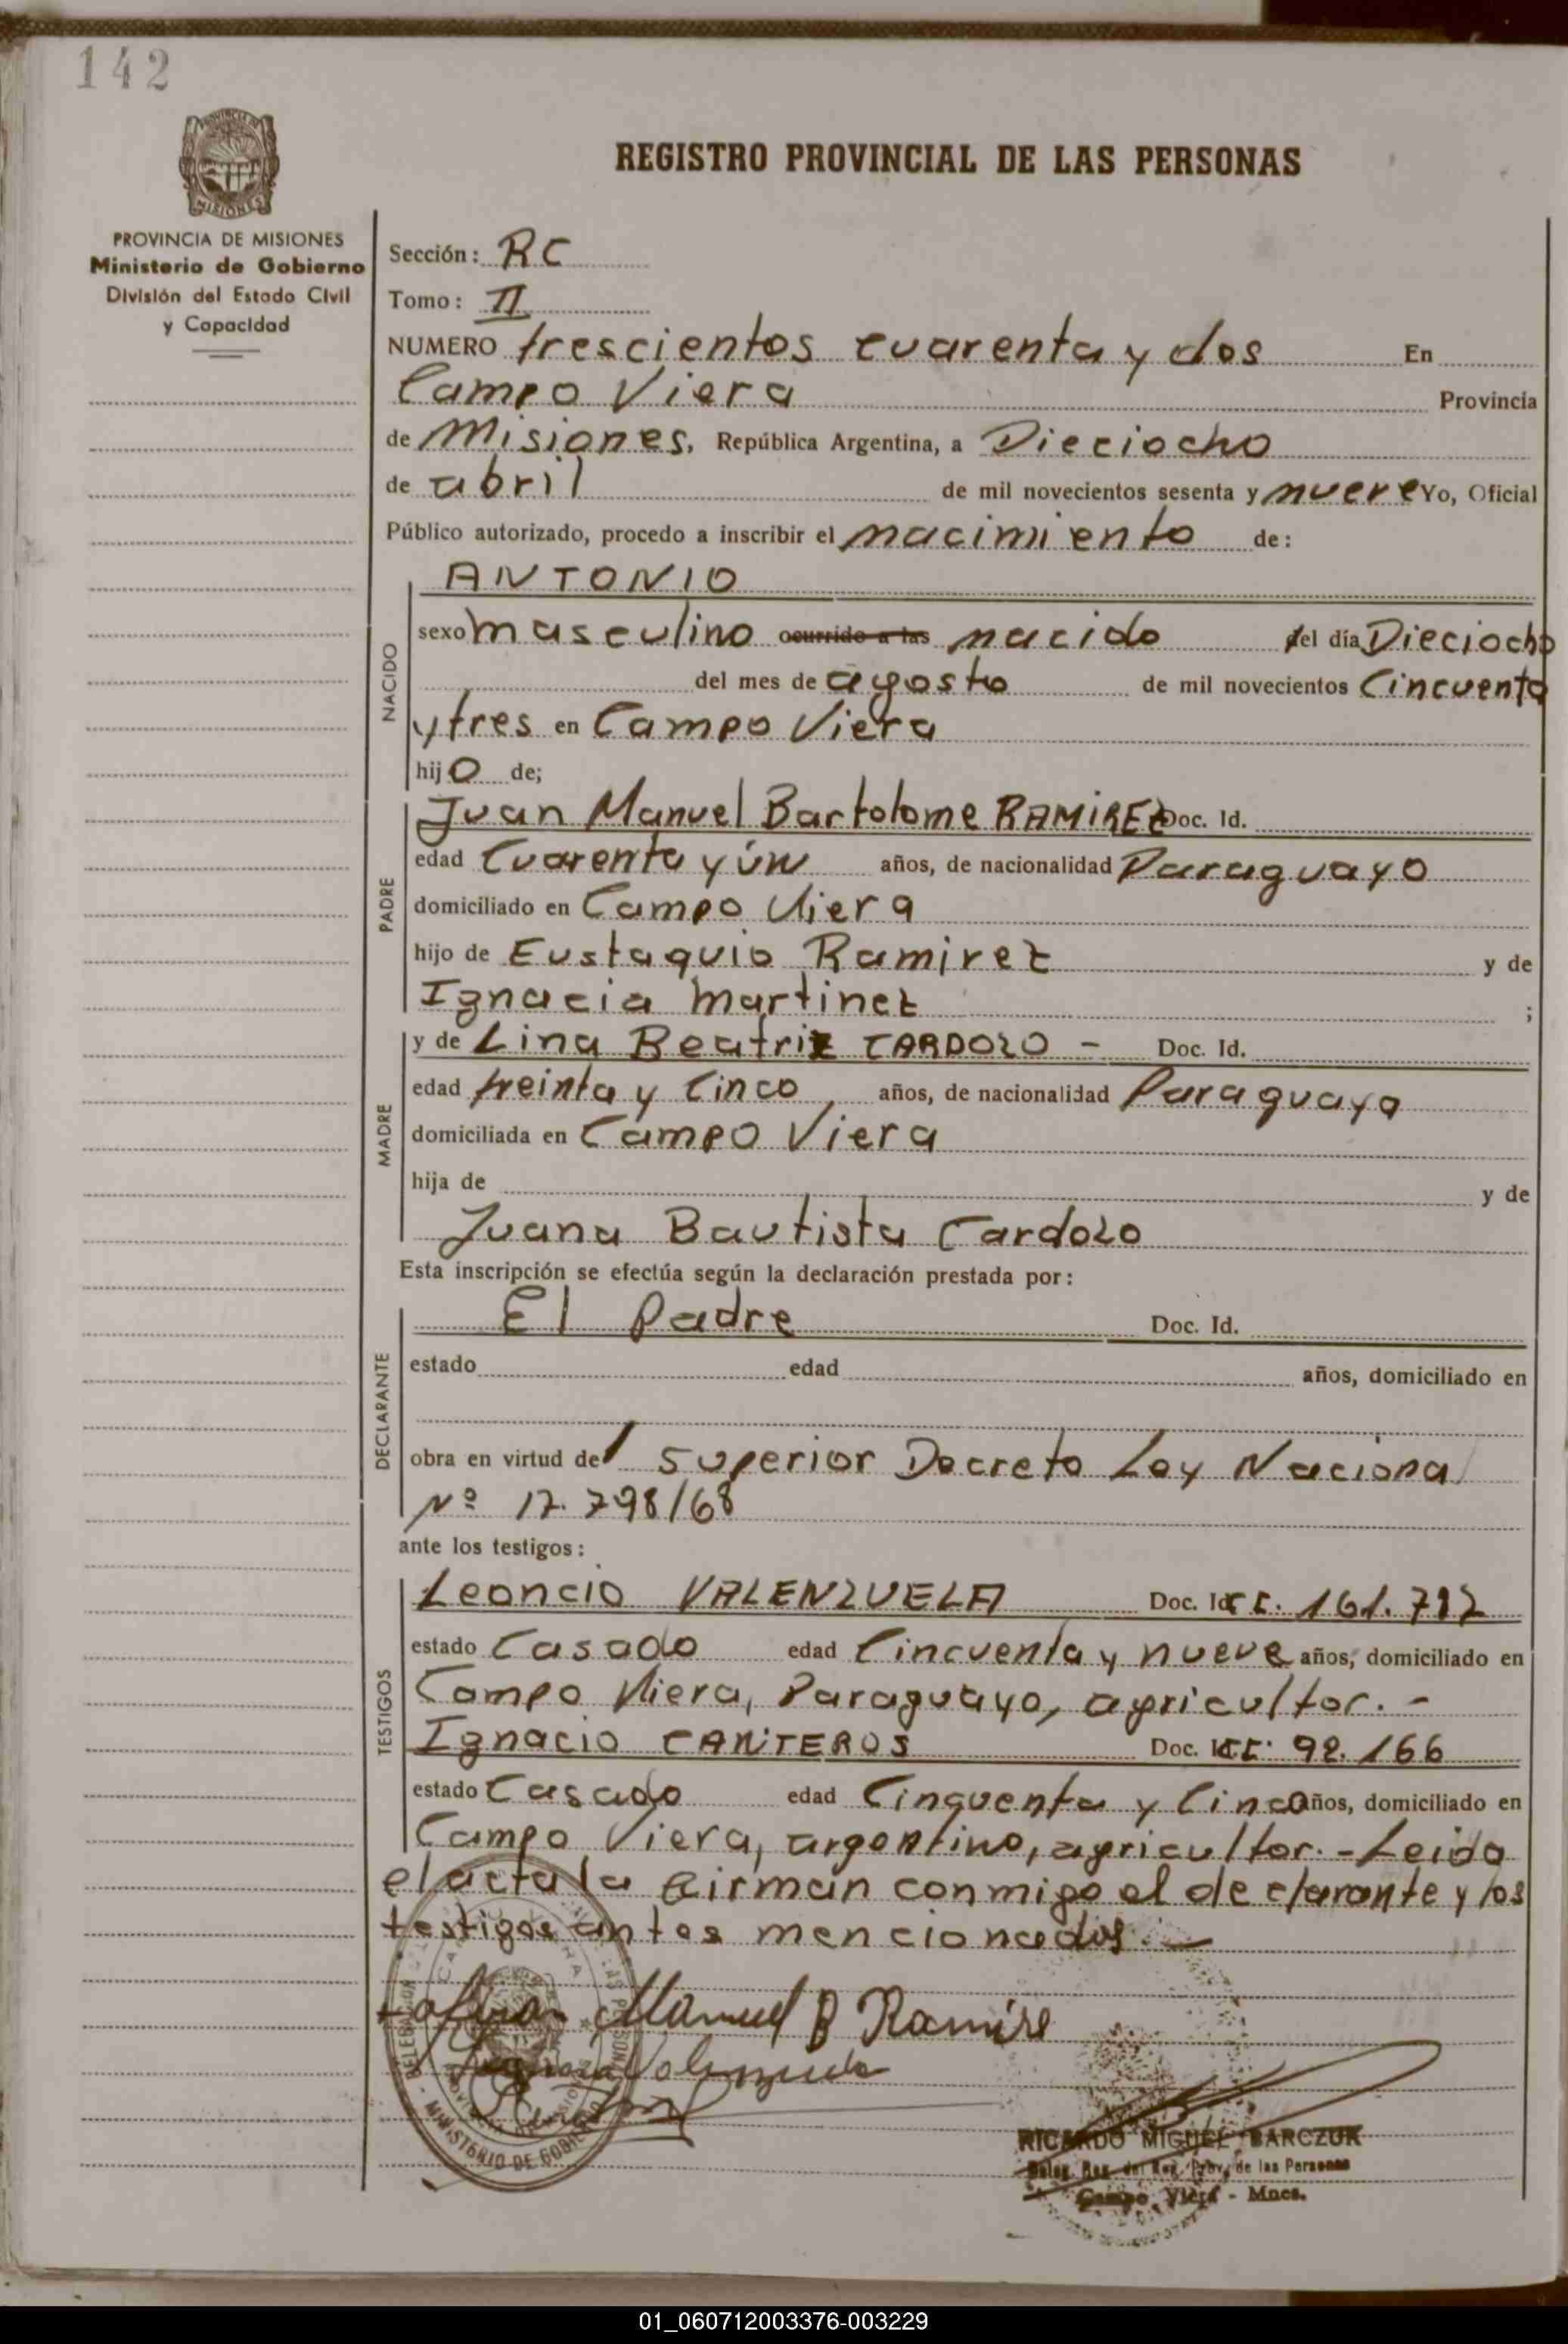 142
REGISTRO PROVINCIAL DE LAS PERSONAS
PROVINCIA DE MISIONES
Ministerio de Gobierno
División del Estado Civil
y Capacidad
Sección: RC
Tomo: II
NUMERO trescientos cuarenta y dos En
Campo Viera Provincia
de Misiones, República Argentina, a Dieciocho
de abril de mil novecientos sesenta y nueve Yo, Oficial
Público autorizado, procedo a inscribir el nacimiento de:
NACIDO
ANTONIO
sexo masculino ocurrido a las nacido del día Dieciocho
del mes de agosto de mil novecientos Cincuenta
y tres en Campo Viera
hijo de;
PADRE
Juan Manuel Bartolome RAMIREZ Doc. Id.
edad Cuarenta y ún años, de nacionalidad Paraguayo
domiciliado en Campo Viera
hijo de Eustaquio Ramirez y de
Ignacia Martinez ;
MADRE
y de Lina Beatriz CARDOZO - Doc. Id.
edad treinta y Cinco años, de nacionalidad Paraguaya
domiciliada en Campo Viera
hija de y de
Juana Bautista Cardozo
Esta inscripción se efectúa según la declaración prestada por:
DECLARANTE
El Padre Doc. Id.
estado edad años, domiciliado en
obra en virtud del Superior Decreto Ley Nacional
Nº 17.798/68
ante los testigos:
TESTIGOS
Leoncio VALENZUELA Doc. Id C.I. 161.792
estado Casado edad Cincuenta y nueve años, domiciliado en
Campo Viera, Paraguayo, agricultor. -
Ignacio CANTEROS Doc. Id C.I. 92.166
estado Casado edad Cinquenta y Cinco años, domiciliado en
Campo Viera, argentino, agricultor. - Leida
el acta la firman conmigo el declarante y los
testigos antes mencionados. -
Manuel B Ramire
Valenzuela
MINISTERIO DE GOBIERNO
RICARDO MIGUEL BARCZUK
Deleg. Reg. del Reg. Prov. de las Personas
Campo Viera - Mnes.
01_060712003376-003229